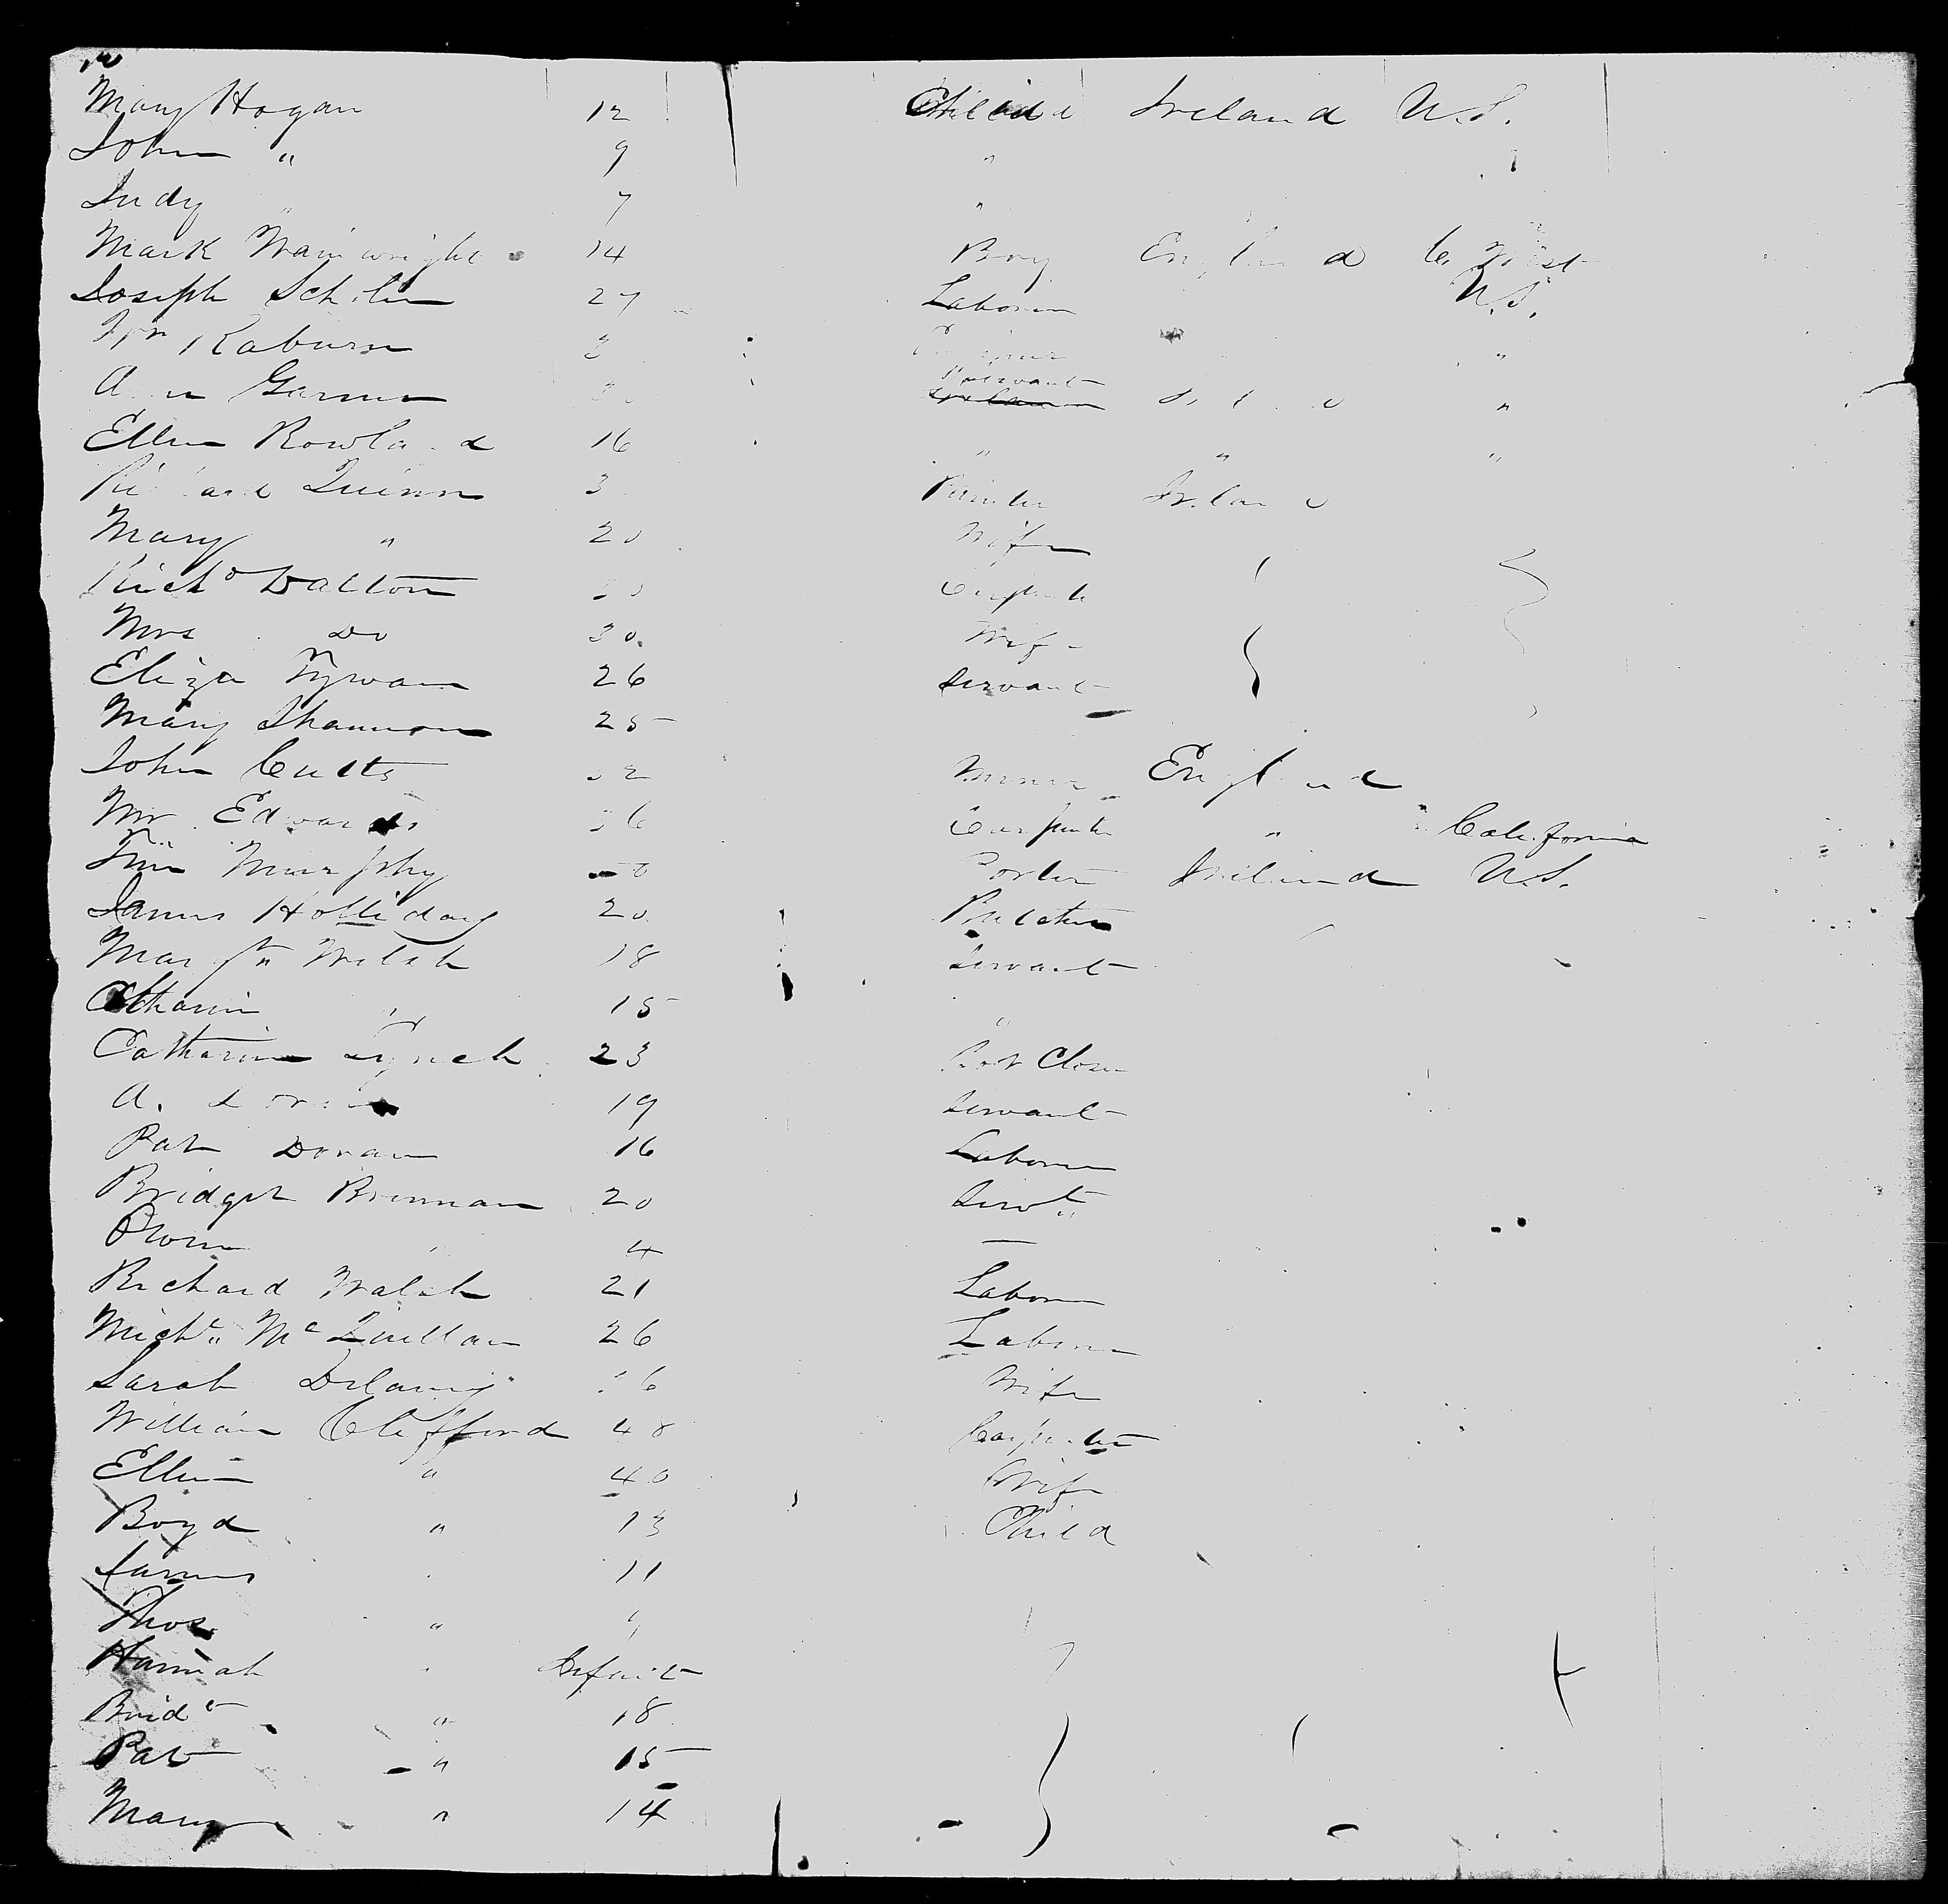 Mary Hogan 12 Child Ireland U.S.
John " 9 "
Judy " 7 "
Mark Wainwright 14 Boy England C. West
Joseph 27 Laborer U.S.
Raburn 3 "
Garner Servant "
Ellen Rowland 16 " " "
Richard Quinn 3 Painter Ireland
Mary " 20 Wife
Richd Dalton Carpenter
Mrs Do 30 Wife
Eliza 26 Servant
Mary Shannon 25
John Cutts 32 Miner England
Mr Edwards 36 Carpenter " California
Tim Murphy Porter Ireland U.S.
James Holliday 20 Butcher
Margt Welsh 18 Servant
Catharine " 15 "
Catharine Lynch 23 Closer
A. 19 Servant
Pat Doran 16 Laborer
Bridget Brennan 20 Servt
Owen " 4 —
Richard Walsh 21 Laborer
Michl Mc Quillan 26 Laborer
Sarah Delany 6 Wife
William Clifford 48 Carpenter
Ellen " 40 Wife
Boyd " 13 Child
James " 11
Thos " 9
Hannah " Infant
Bridt " 18
Pat " 15
Mary " 14